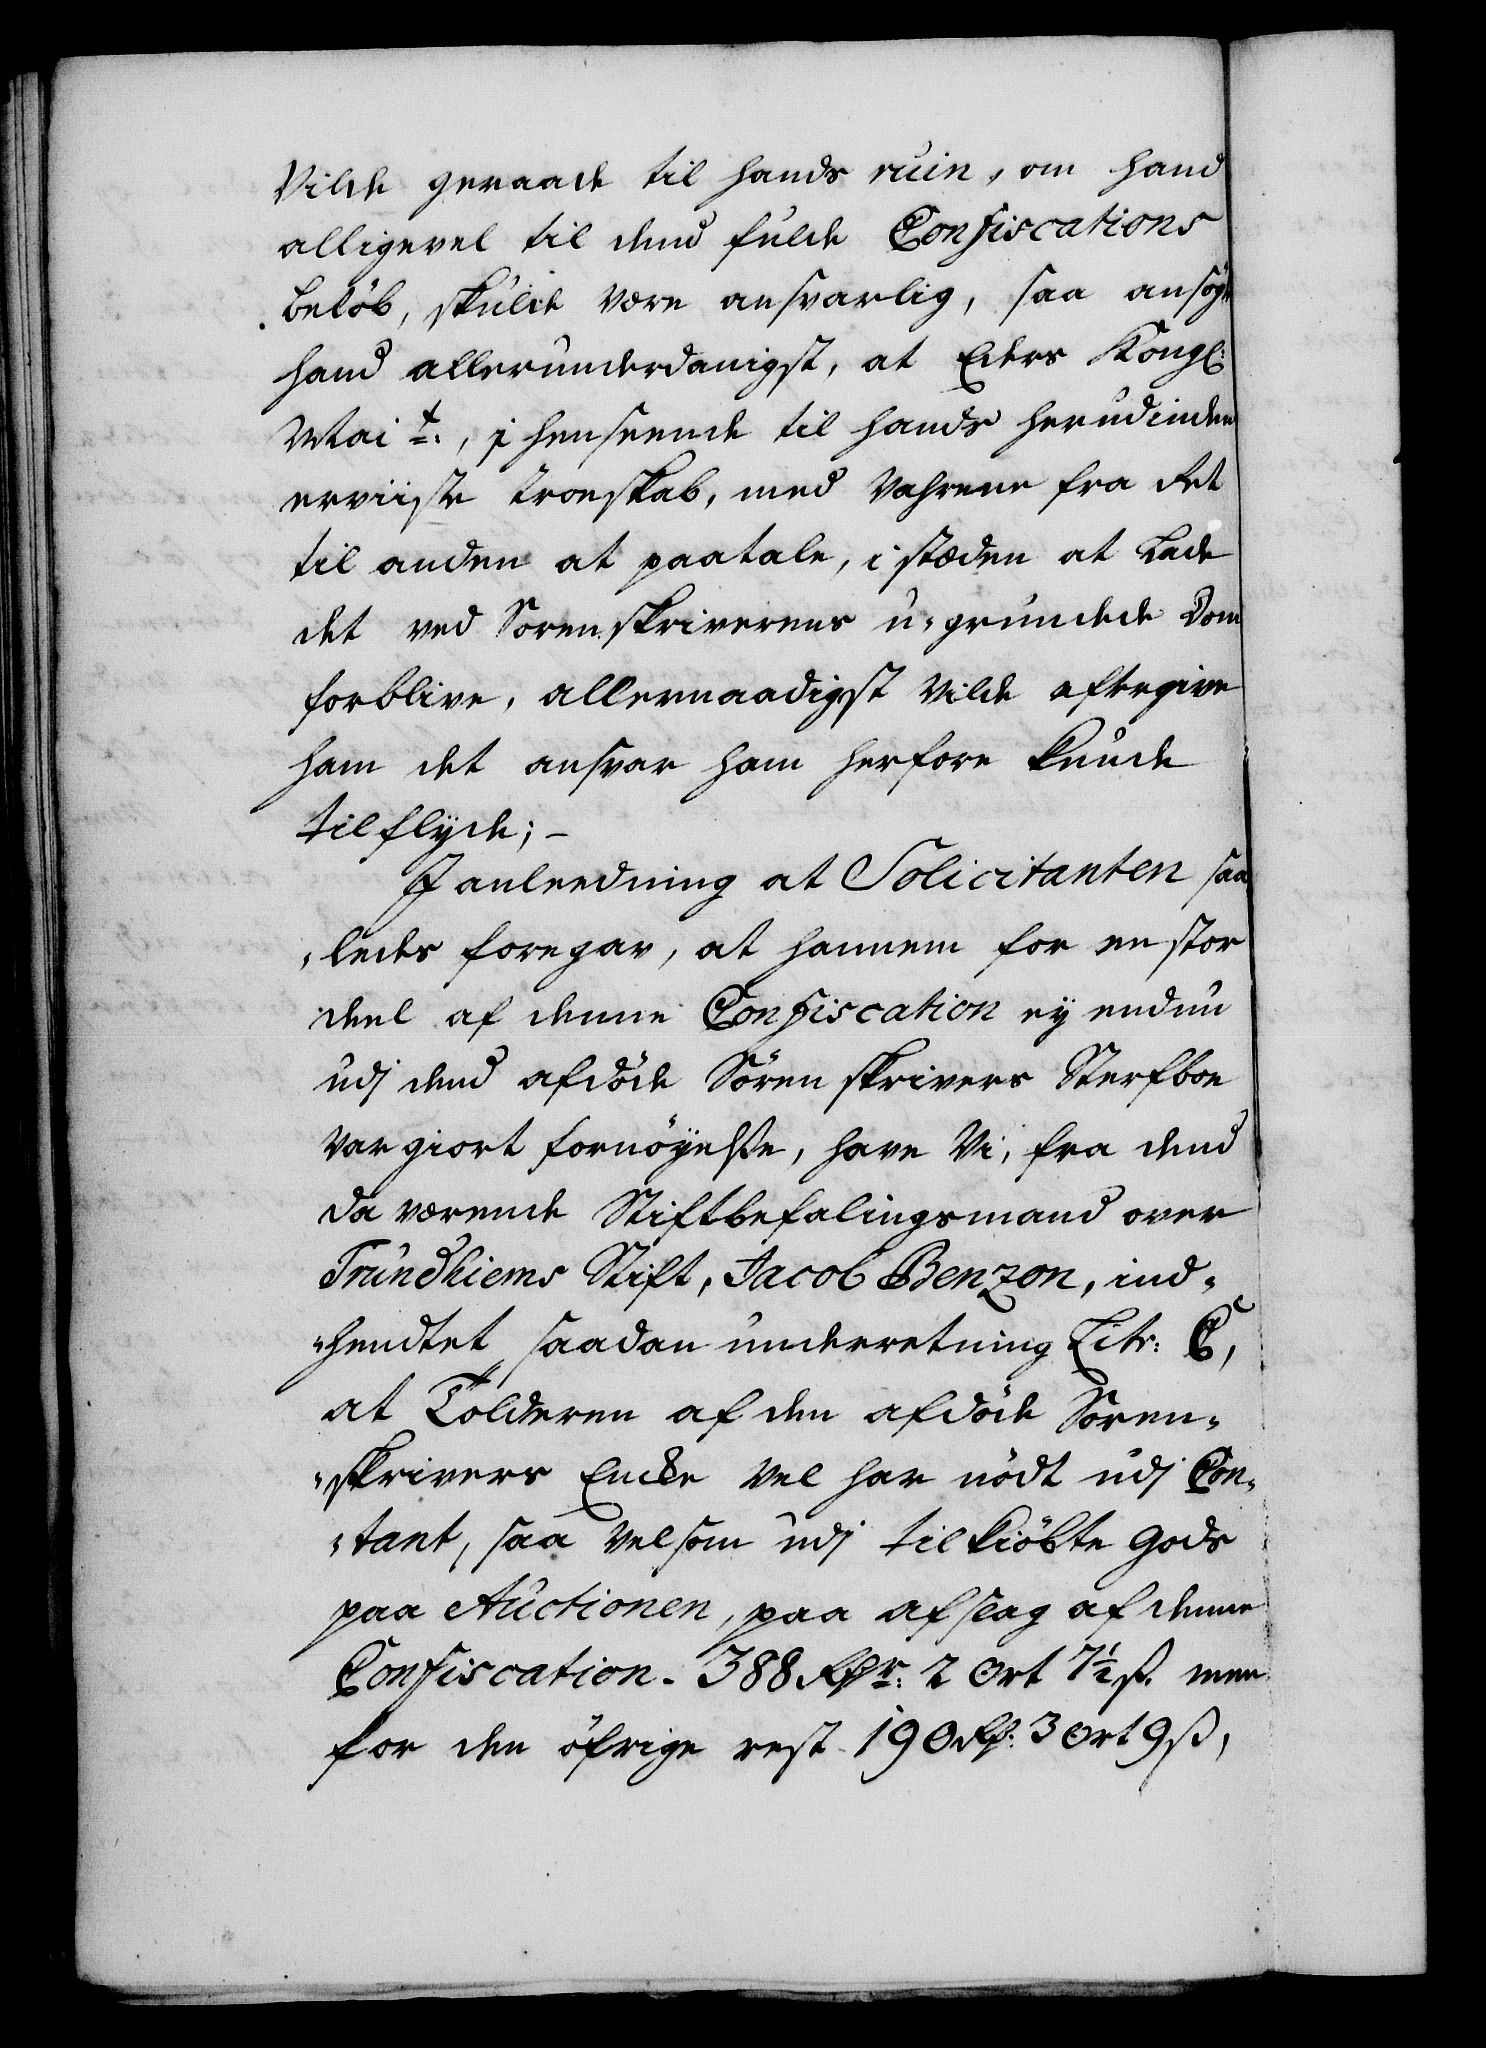 Vilde geraade til hands ruin, om hand
alligevel til dend fulde Confiscations
beløb, skulde være ansvarlig, saa ansøgte
hand allerunderdanigst, at Eders Kongl:
Mai.t:, i henseende til hands herudinden
erviiste troeskab, med Vahrene fra det
til anden at paatale, i stæden at Lade
det ved Sorenskriverens u-grundede Dom
forblive, allernaadigst Vilde eftergive
ham det ansvar ham herfore kunde
tilflyde; -
I anleedning at Solicitanten saa-
-ledes foregav, at hannem for en stor
deel af denne Confiscation ey endnu
udj dend afdøde Sören skrivers Sterfboe
var giort fornöyelße, have Vi, fra dend
da værende Stiftbefalingsmand over
Trundhiems Stift, Jacob Benzon, ind-
-hendtet saadan underretning Litr: C,
at Tolderen af den afdöde Soren-
-skrivers Encke vel har nödt udj Con-
-tant, saa velsom udj tilkiöbte Gods
paa Auctionen, paa afslag af denne
Confiscation - 388 Rdr: 2 ort 7½ ß. men
for den öfrige rest 190 Rd: 3 ort 9 ß,